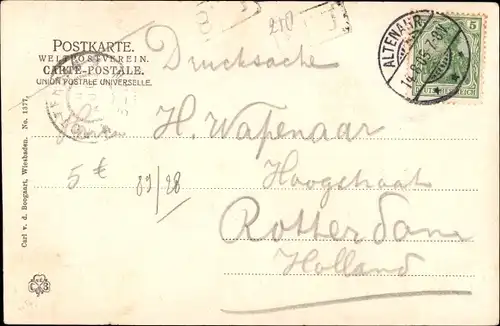 210
POSTKARTE.
WELTPOSTVEREIN.
CARTE-POSTALE.
UNION POSTALE UNIVERSELLE.
Drucksache
ALTENAHR
5
DEUTSCHES REICH
H. Wafenaar
5 €
89/28
Hoogstraat
Rotterdam
Holland
Carl v. d. Boogaart, Wiesbaden. No. 1377.